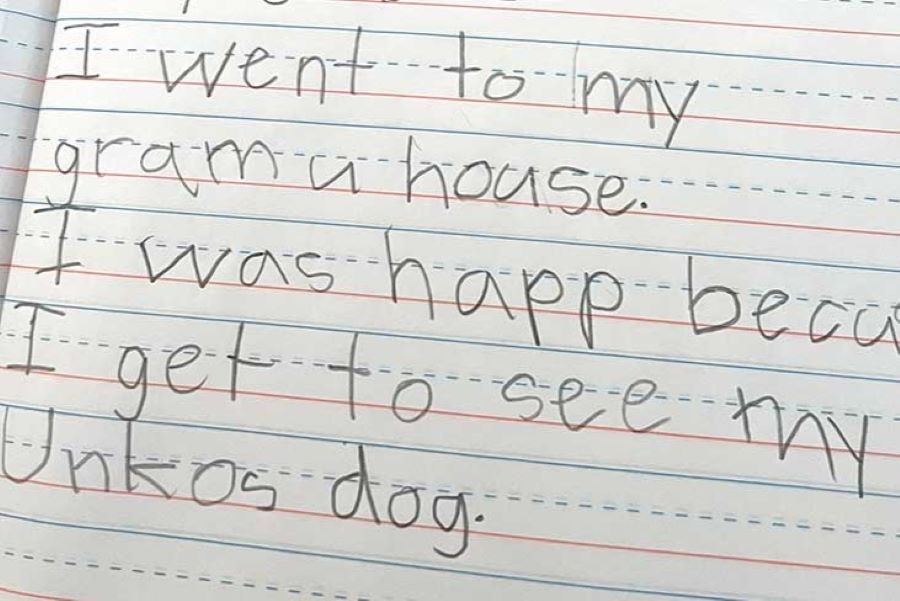 I went to my
gramu house.
I was happ becu
I get to see my
Unkos dog.